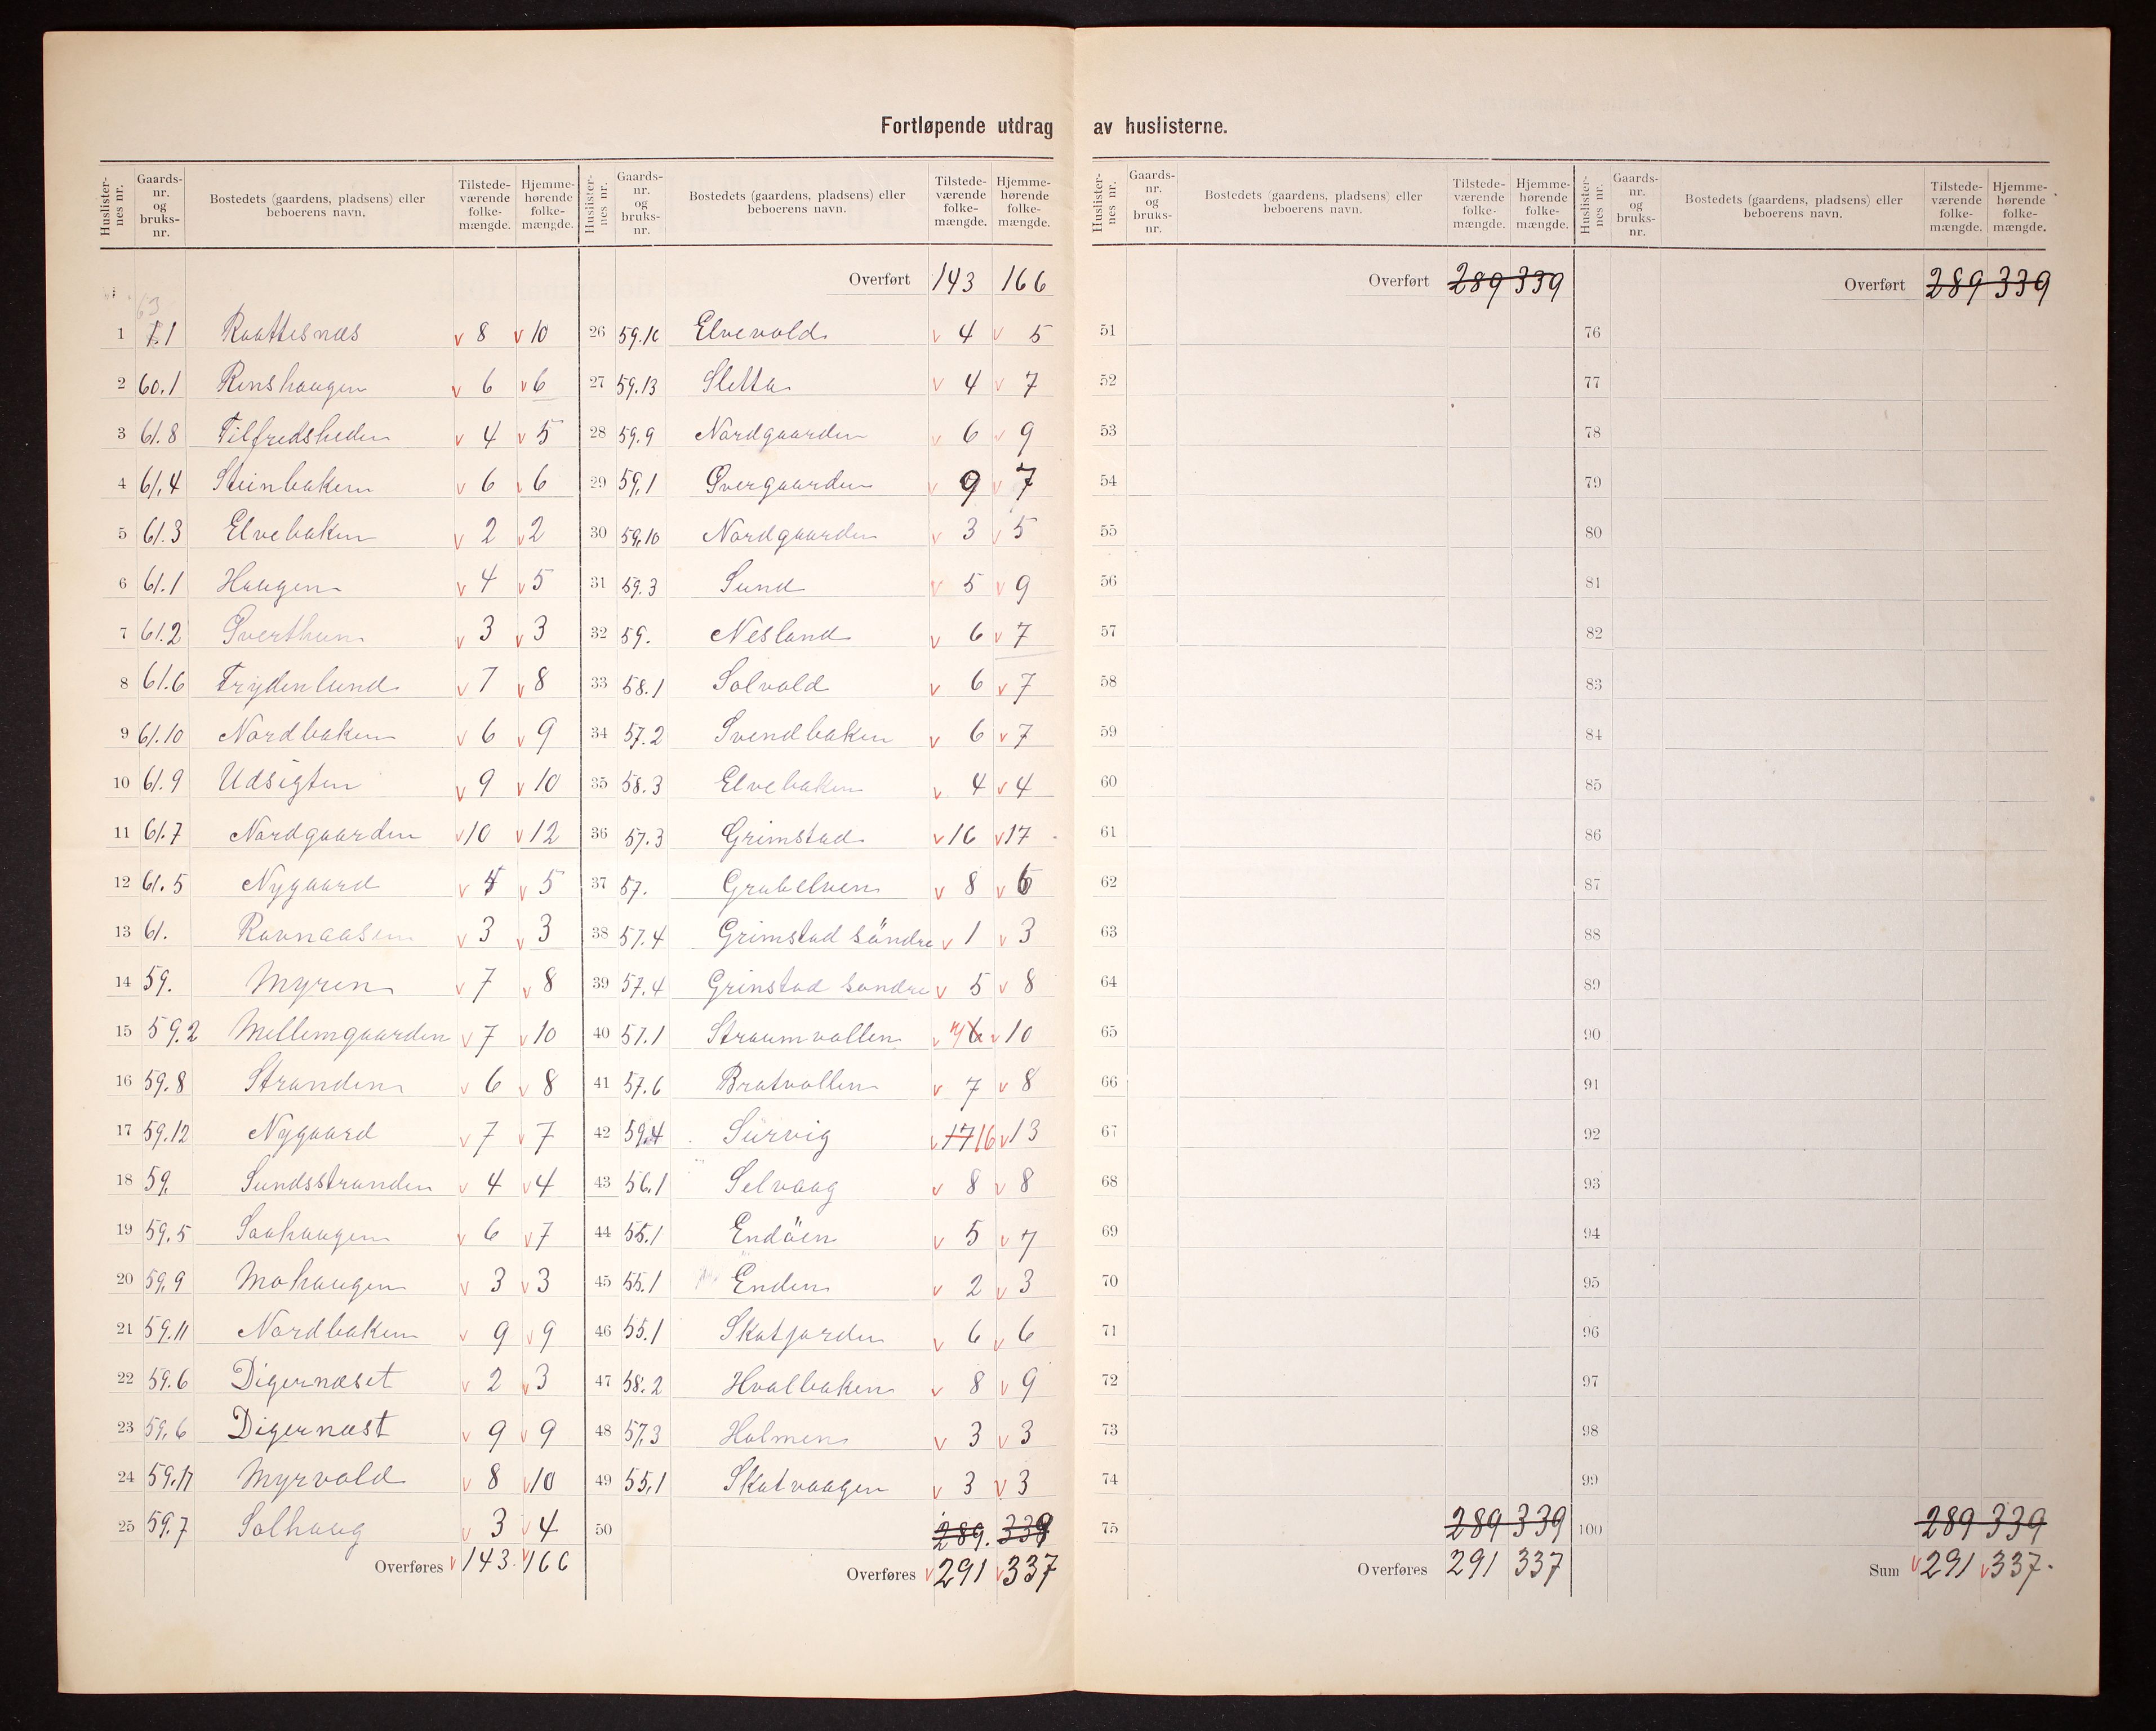 Fortløpende utdrag av huslisterne.
Huslisternes nr. Gaards-nr. og bruks-nr. Bostedets (gaardens, pladsens) eller beboerens navn. Tilstedeværende folkemængde. Hjemmehørende folkemængde.
63
1 7.1 Raattesnæs v 8 v 10
2 60.1 Renshaugen v 6 v 6
3 61.8 Tilfredsheden v 4 v 5
4 61,4 Steinbaken v 6 v 6
5 61.3 Elvebaken v 2 v 2
6 61.1 Haugen v 4 v 5
7 61.2 Sverthun v 3 v 3
8 61.6 Frydenlund v 7 v 8
9 61.10 Nordbaken v 6 v 9
10 61.9 Udsigten v 9 v 10
11 61.7 Nordgaarden v 10 v 12
12 61.5 Nygaard v v 5
13 61. Ravnaasen v 3 v 3
14 59. Myren v 7 v 8
15 59.2 Mellemgaarden v 7 v 10
16 59.8 Stranden v 6 v 8
17 59.12 Nygaard v 7 v 7
18 59. Sundsstranden v 4 v 4
19 59.5 Saahaugen v 6 v 7
20 59.9 Mohaugen v 3 v 3
21 59.11 Nordbaken v 9 v 9
22 59.6 Digernæset v 2 v 3
23 59.6 Digernæst v 9 v 9
24 59.17 Myrvold v 8 v 10
25 59.7 Solhaug v 3 v 4
Overføres v 143. v 166
Huslisternes nr. Gaards-nr. og bruks-nr. Bostedets (gaardens, pladsens) eller beboerens navn. Tilstedeværende folkemængde. Hjemmehørende folkemængde.
Overført 143 166
26 59.16 Elvevold v 4 v 5
27 59.13 Sletta v 4 v 7
28 59.9 Nordgaarden v 6 v 9
29 59,1 Øvergaarden v 9 v 7
30 59,10 Nordgaarden v 3 v 5
31 59.3 Sund v 5 v 9
32 59. Nesland v 6 v 7
33 58.1 Solvold v 6 v 7
34 57.2 Svendbaken v 6 v 7
35 58.3 Elvebaken v 4 v 4
36 57.3 Grimstad v 16 v 17
37 57. Grubelven v 8 v 6
38 57.4 Grimstad søndre v 1 v 3
39 57.4 Grinstad søndre v 5 v 8
40 57.1 Straumvollen v 6 v 10
41 57.6 Bratvollen v 7 v 8
42 59.4 Sürvig v 17 16 v 13
43 56.1 Selvaag v 8 v 8
44 55.1 Endöen v 5 v 7
45 55.1 Enden v 2 v 3
46 55.1 Skatjorden v 6 v 6
47 58.2 Hvalbaken v 8 v 9
48 57,3 Holmen v 3 v 3
49 55,1 Skatvaagen v 3 v 3
50 289. 339
Overføres v 291 v 337
Huslisternes nr. Gaards-nr. og bruks-nr. Bostedets (gaardens, pladsens) eller beboerens navn. Tilstedeværende folkemængde. Hjemmehørende folkemængde.
Overført 289 339
51
52
53
54
55
56
57
58
59
60
61
62
63
64
65
66
67
68
69
70
71
72
73
74
75 289 339
Overføres 291 337
Huslisternes nr. Gaards-nr. og bruks-nr. Bostedets (gaardens, pladsens) eller beboerens navn. Tilstedeværende folkemængde. Hjemmehørende folkemængde.
Overført 289 339
76
77
78
79
80
81
82
83
84
85
86
87
88
89
90
91
92
93
94
95
96
97
98
99
100 289 339
Sum v 291 v 337.